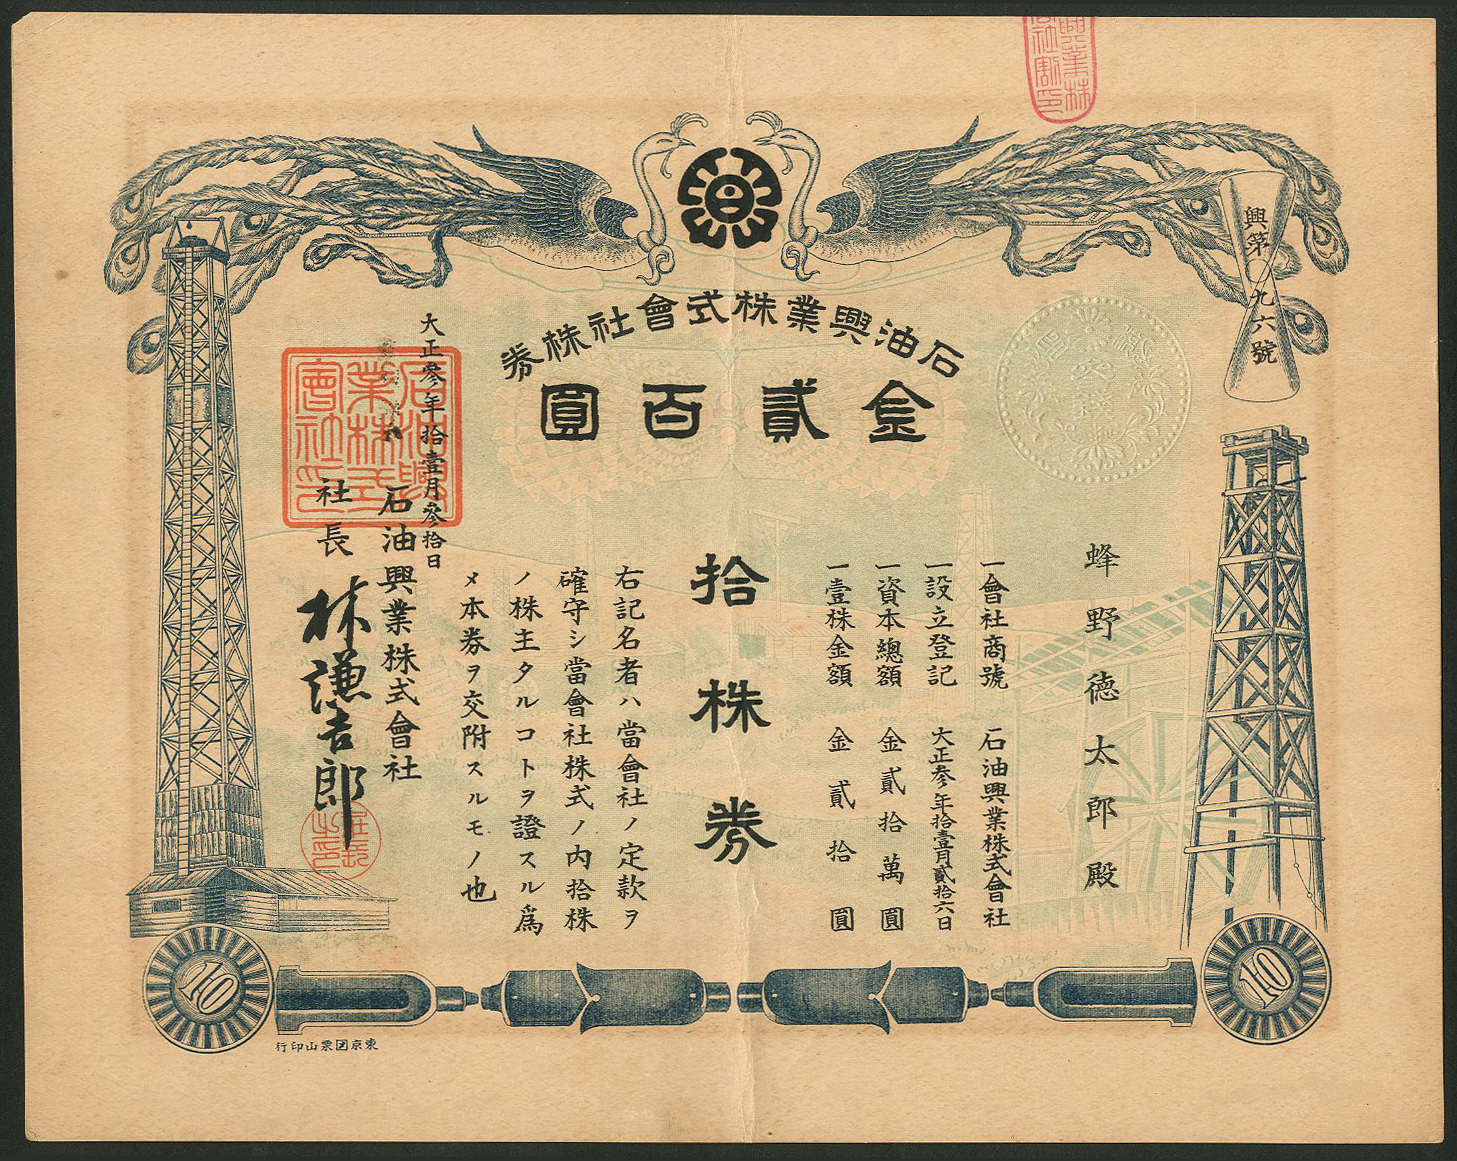 石油興業株式會社株券
金貳百圓
興第九六號
蜂野徳太郎殿
一會社商號 石油興業株式會社
一設立登記 大正參年拾壹月貳拾六日
一資本總額 金貳拾萬圓
一壹株金額 金貳拾圓
拾株券
右記名者ハ當會社ノ定款ヲ
確守シ當會社株式ノ内拾株
ノ株主タルコトヲ證スル爲
メ本券ヲ交附スルモノ也
大正參年拾壹月參拾日
石油興業株式會社
社長 林謙吉郎
石油興業株式會社印
10
10
東京国票山印行